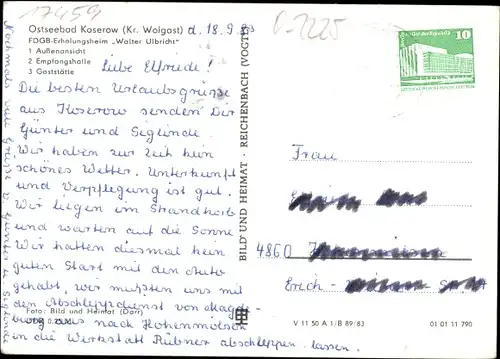 17459
V-7225
Ostseebad Koserow (Kr. Wolgast) d. 18.9.83
FDGB-Erholungsheim „Walter Ulbricht"
1 Außenansicht
2 Empfangshalle
3 Gaststätte
Liebe Elfriede!
Die besten Urlaubsgrüsse
aus Koserow senden Dir
Günter und Seglinde.
Wir haben zur Zeit kein
schönes Wetter. Unterkunft
und Verpflegung ist gut.
Wir liegen im Strandkorb
und warten auf die Sonne
Wir hatten diesmal kein
guten Start mit den Auto
gehabt, wir mußten uns mit
den Abschleppdienst von Magde
burg aus nach Hohenmölsen
in die Werkstatt Rübner abschleppen lassen.
Nochmals viele Grüße v. Günter u. Seglinde
Foto: Bild und Heimat (Darr)
BILD UND HEIMAT · REICHENBACH (VOGTL)
10
Frau
4860
Erich-
V 11 50 A 1/B 89/83
01 01 11 790